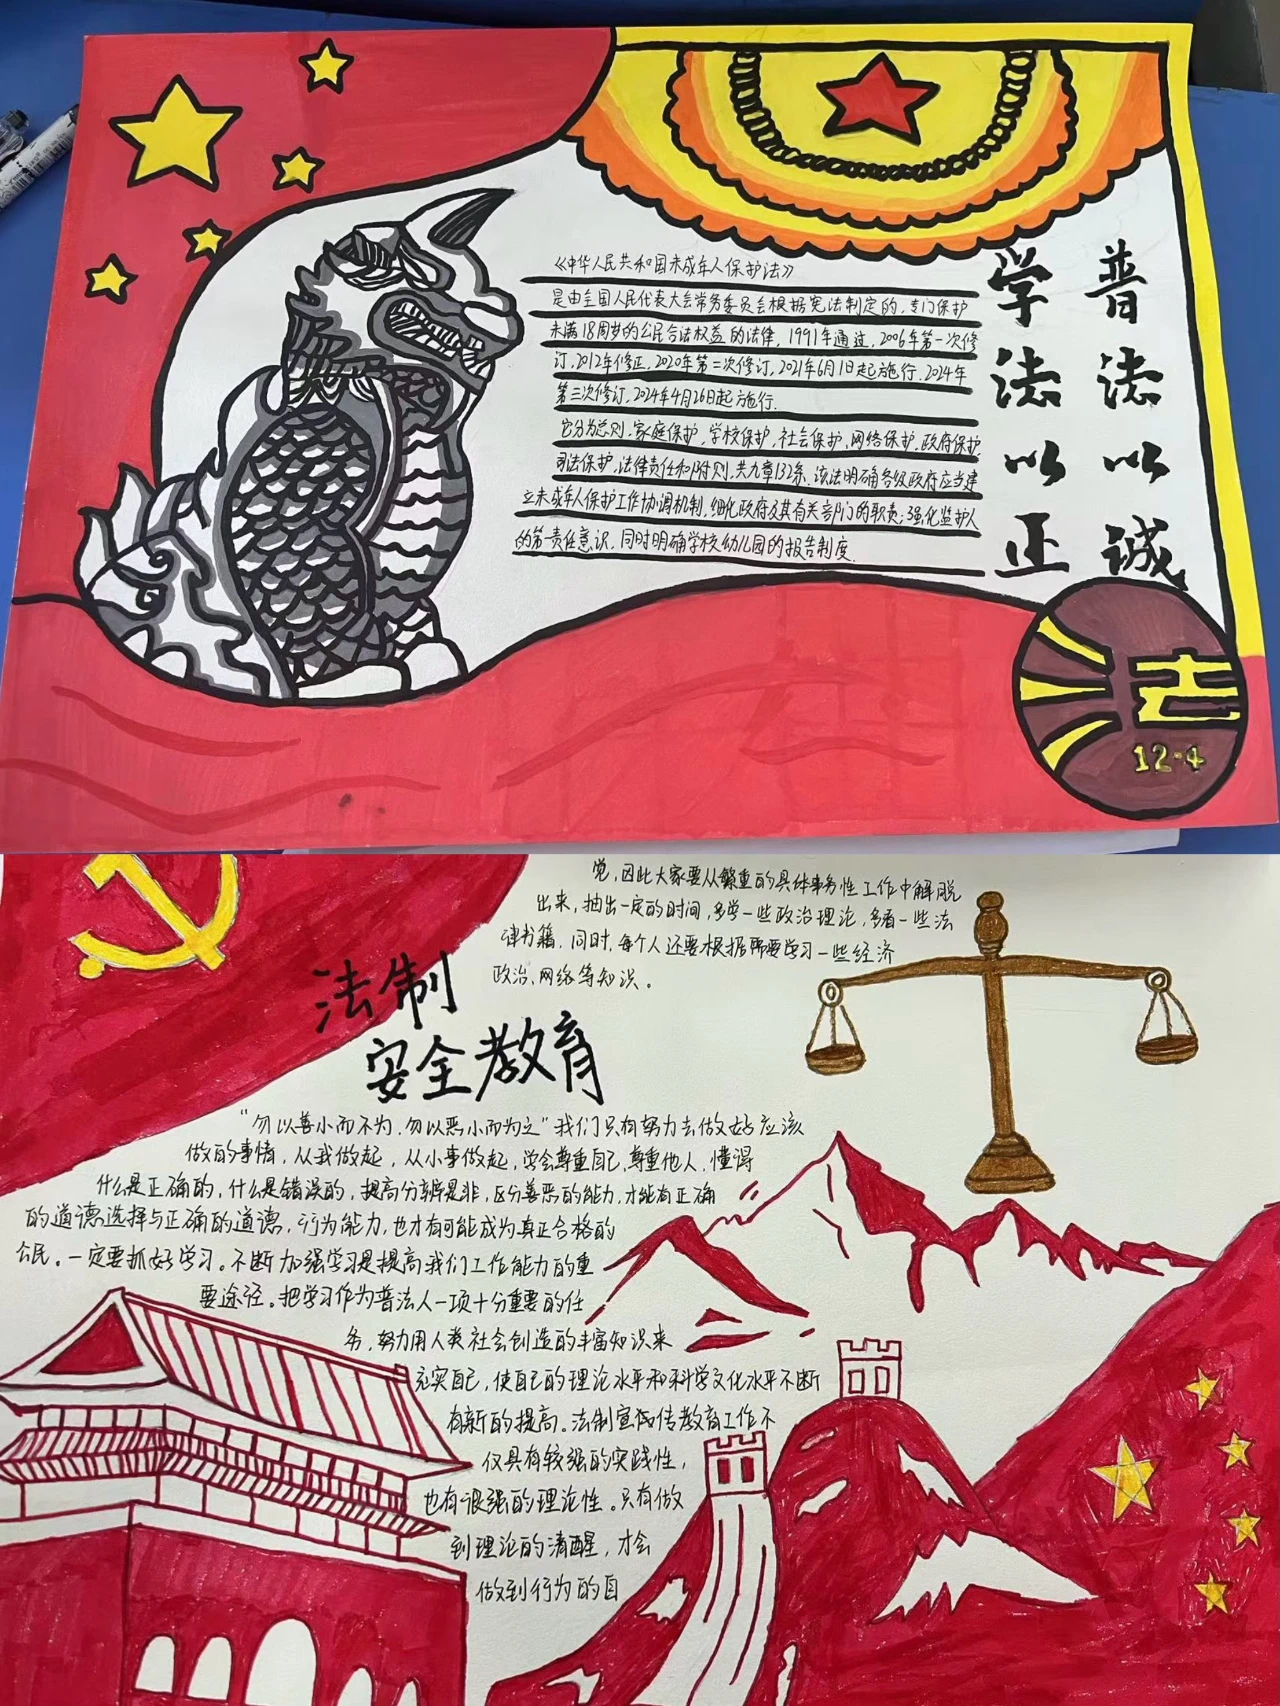 《中华人民共和国未成年人保护法》
是由全国人民代表大会常务委员会根据宪法制定的,专门保护
未满18周岁的公民合法权益的法律,1991年通过,2006年第一次修
订,2012年修正,2020年第二次修订,2021年6月1日起施行.2024年
第三次修订,2024年4月26日起施行.
它分为总则、家庭保护、学校保护、社会保护、网络保护、政府保护
司法保护、法律责任和附则,共九章132条.该法明确各级政府应当建
立未成年人保护工作协调机制,细化政府及其有关部门的职责;强化监护人
的第一责任意识,同时明确学校幼儿园的报告制度
普法以诚
学法以正
法
12·4
法制
安全教育
"勿以善小而不为,勿以恶小而为之"我们只有努力去做好应该
做的事情,从我做起,从小事做起,学会尊重自己,尊重他人,懂得
什么是正确的,什么是错误的,提高分辨是非,区分善恶的能力,才能有正确
的道德选择与正确的道德,行为能力,也才有可能成为真正合格的
公民。一定要抓好学习。不断加强学习是提高我们工作能力的重
要途径。把学习作为普法人一项十分重要的任
务,努力用人类社会创造的丰富知识来
充实自己,使自己的理论水平和科学文化水平不断
有新的提高。法制宣传教育工作不
仅具有较强的实践性,
也有很强的理论性。只有做
到理论的清醒,才会
做到行为的自
觉,因此大家要从繁重的具体事务性工作中解脱
出来,抽出一定的时间,多学一些政治理论,多看一些法
律书籍.同时,每个人还要根据需要学习一些经济
政治、网络等知识。